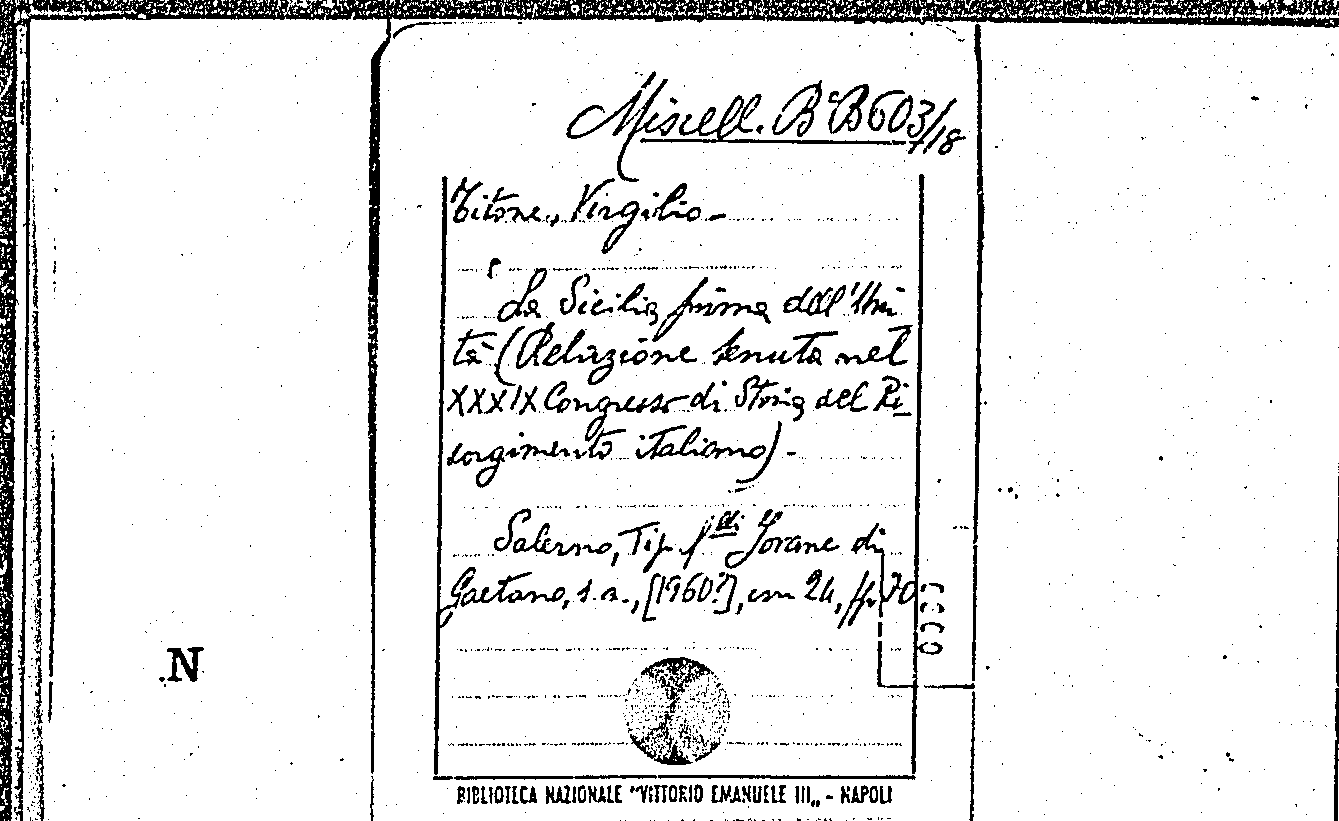 Miscell. B<sup>a</sup> B 603/18
Titone, Virgilio -
La Sicilia prima dell'Uni
tà (Relazione tenuta nel
XXXIX Congresso di Storia del Ri
sorgimento italiano). -
Salerno, Tip. f<sup>lli</sup> Jovane di
Gaetano, s. a., [1960?], cm 24, pp. 70
N
BIBLIOTECA NAZIONALE "VITTORIO EMANUELE III„ - NAPOLI